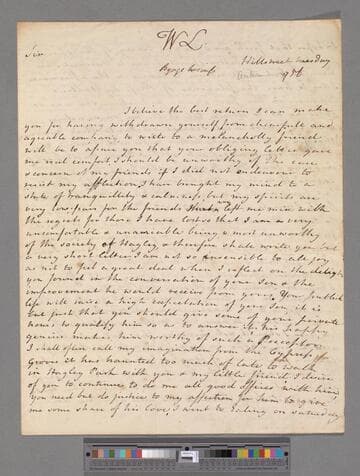 WL.
Sir
Hillstreet tuesday
I believe the best return I can make
you for having withdrawn yourself from chearfull and
agreable company to write to a melancholly friend
will be to assure you that your obliging letter gave
me real comfort I should be unworthy of the care
& concern of my friends if I did not endeavour to
resist my affliction, I have brought my mind to a
state of tranquillity & calmness, but my spirits are
very low, for the friends mix with
the regrets for those I have lost so that I am a very
uncomfortable & unamiable being & most unworthy
of the society of Hagley, & therefore shall write you but
a very short letter. I am not so insensible to all joy
as not to feel a great deal when I reflect on the delight
you found in the conversation of your Son & the
improvement he would receive from yours. Your publick
life will raise a high expectation of your Son, it is
but just that you should give some of your private
hours to qualify him so as to answer it. his happy
genius makes him worthy of such a preceptor.
I shall soon call my imagination from the Cypress
Grove it has haunted too much of late to walk
in Hagley Park with you & my little friend. I desire
of you to continue to do me all good offices with him
You need but do justice to my affection for him to give
me some share of his love. I went to Ealing on saturday